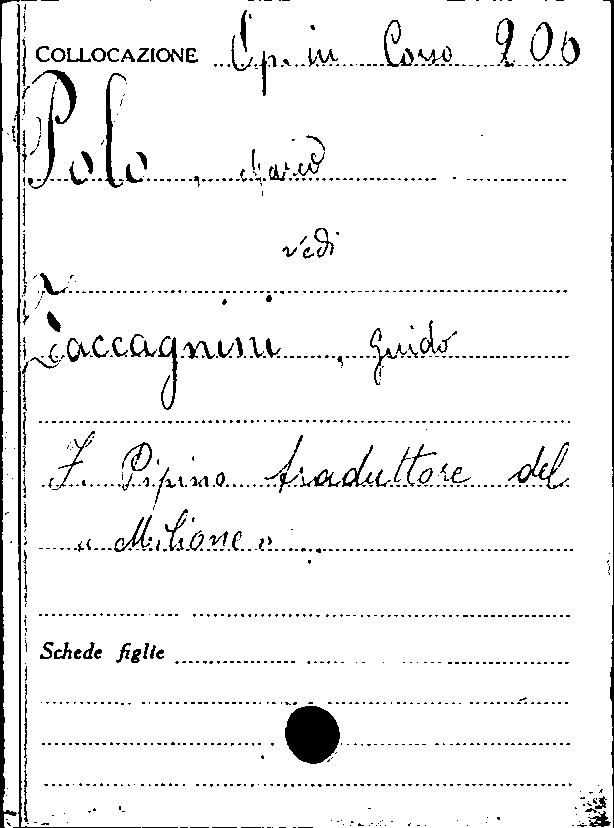 COLLOCAZIONE Op. in Corso 206
Polo, Marco
vedi
Zaccagnini, Guido
F. Pipino traduttore del
"Milione"..
Schede figlie